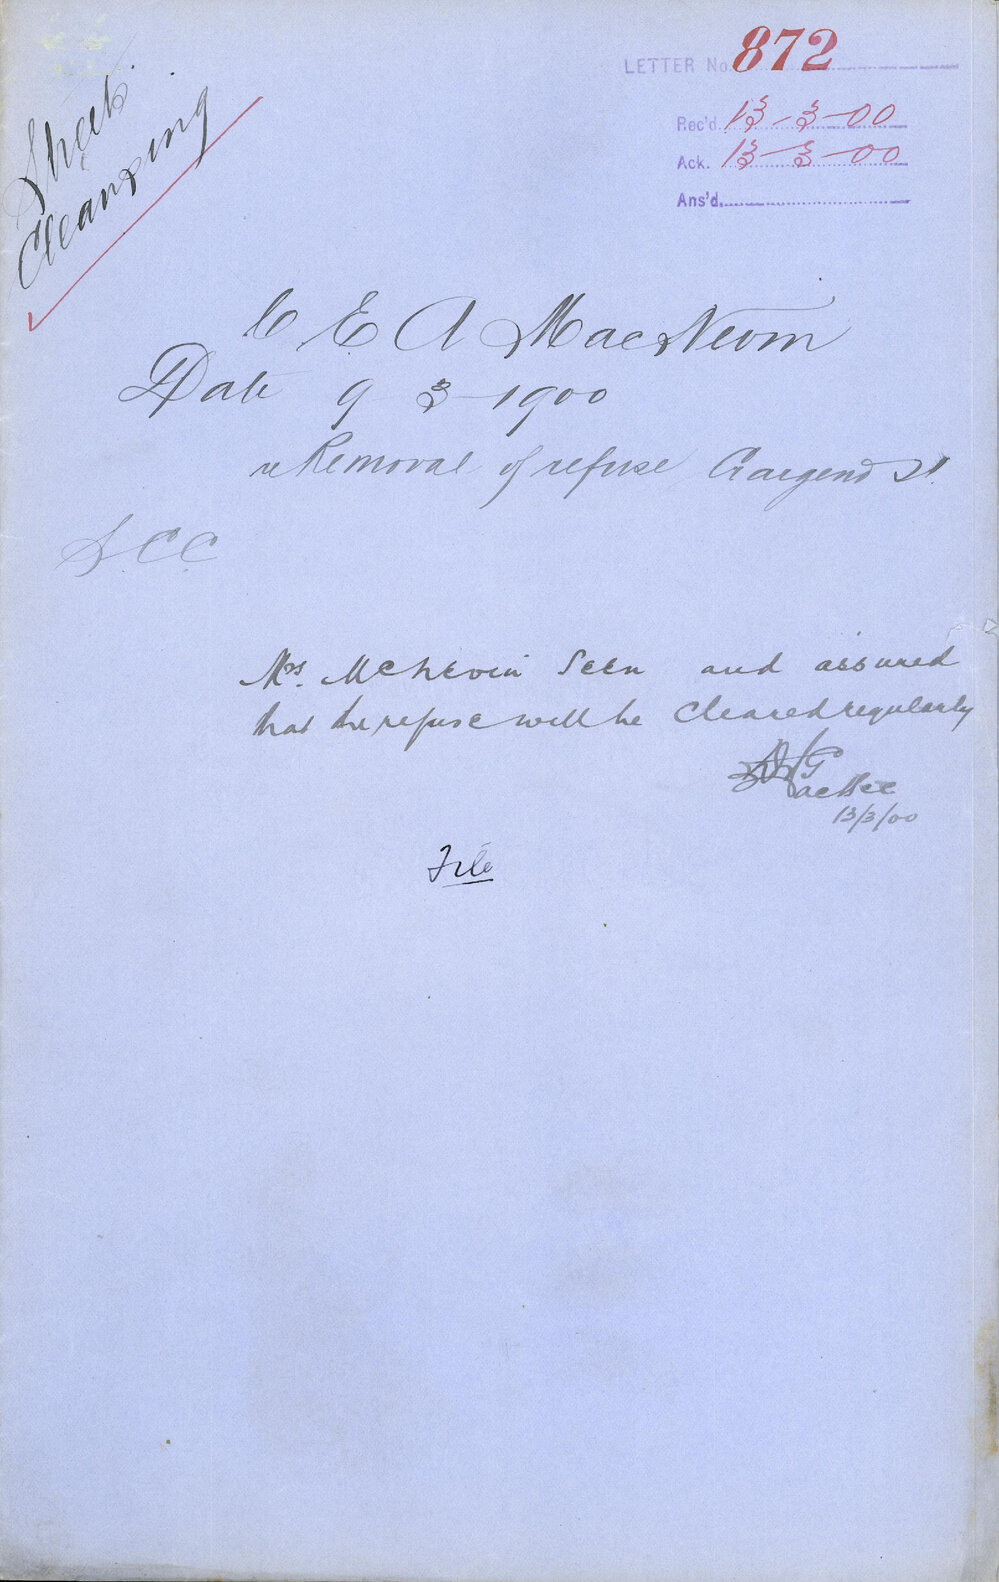 Street
Cleansing
LETTER No. 872
Rec'd. 13-3-00
Ack. 13-3-00
Ans'd.
C E A MacNevin
Date 9 3 1900
re Removal of refuse St.
S.C.C.
Mrs. McNevin Seen and assured
that the refuse will be Cleared regularly
13/3/00
File